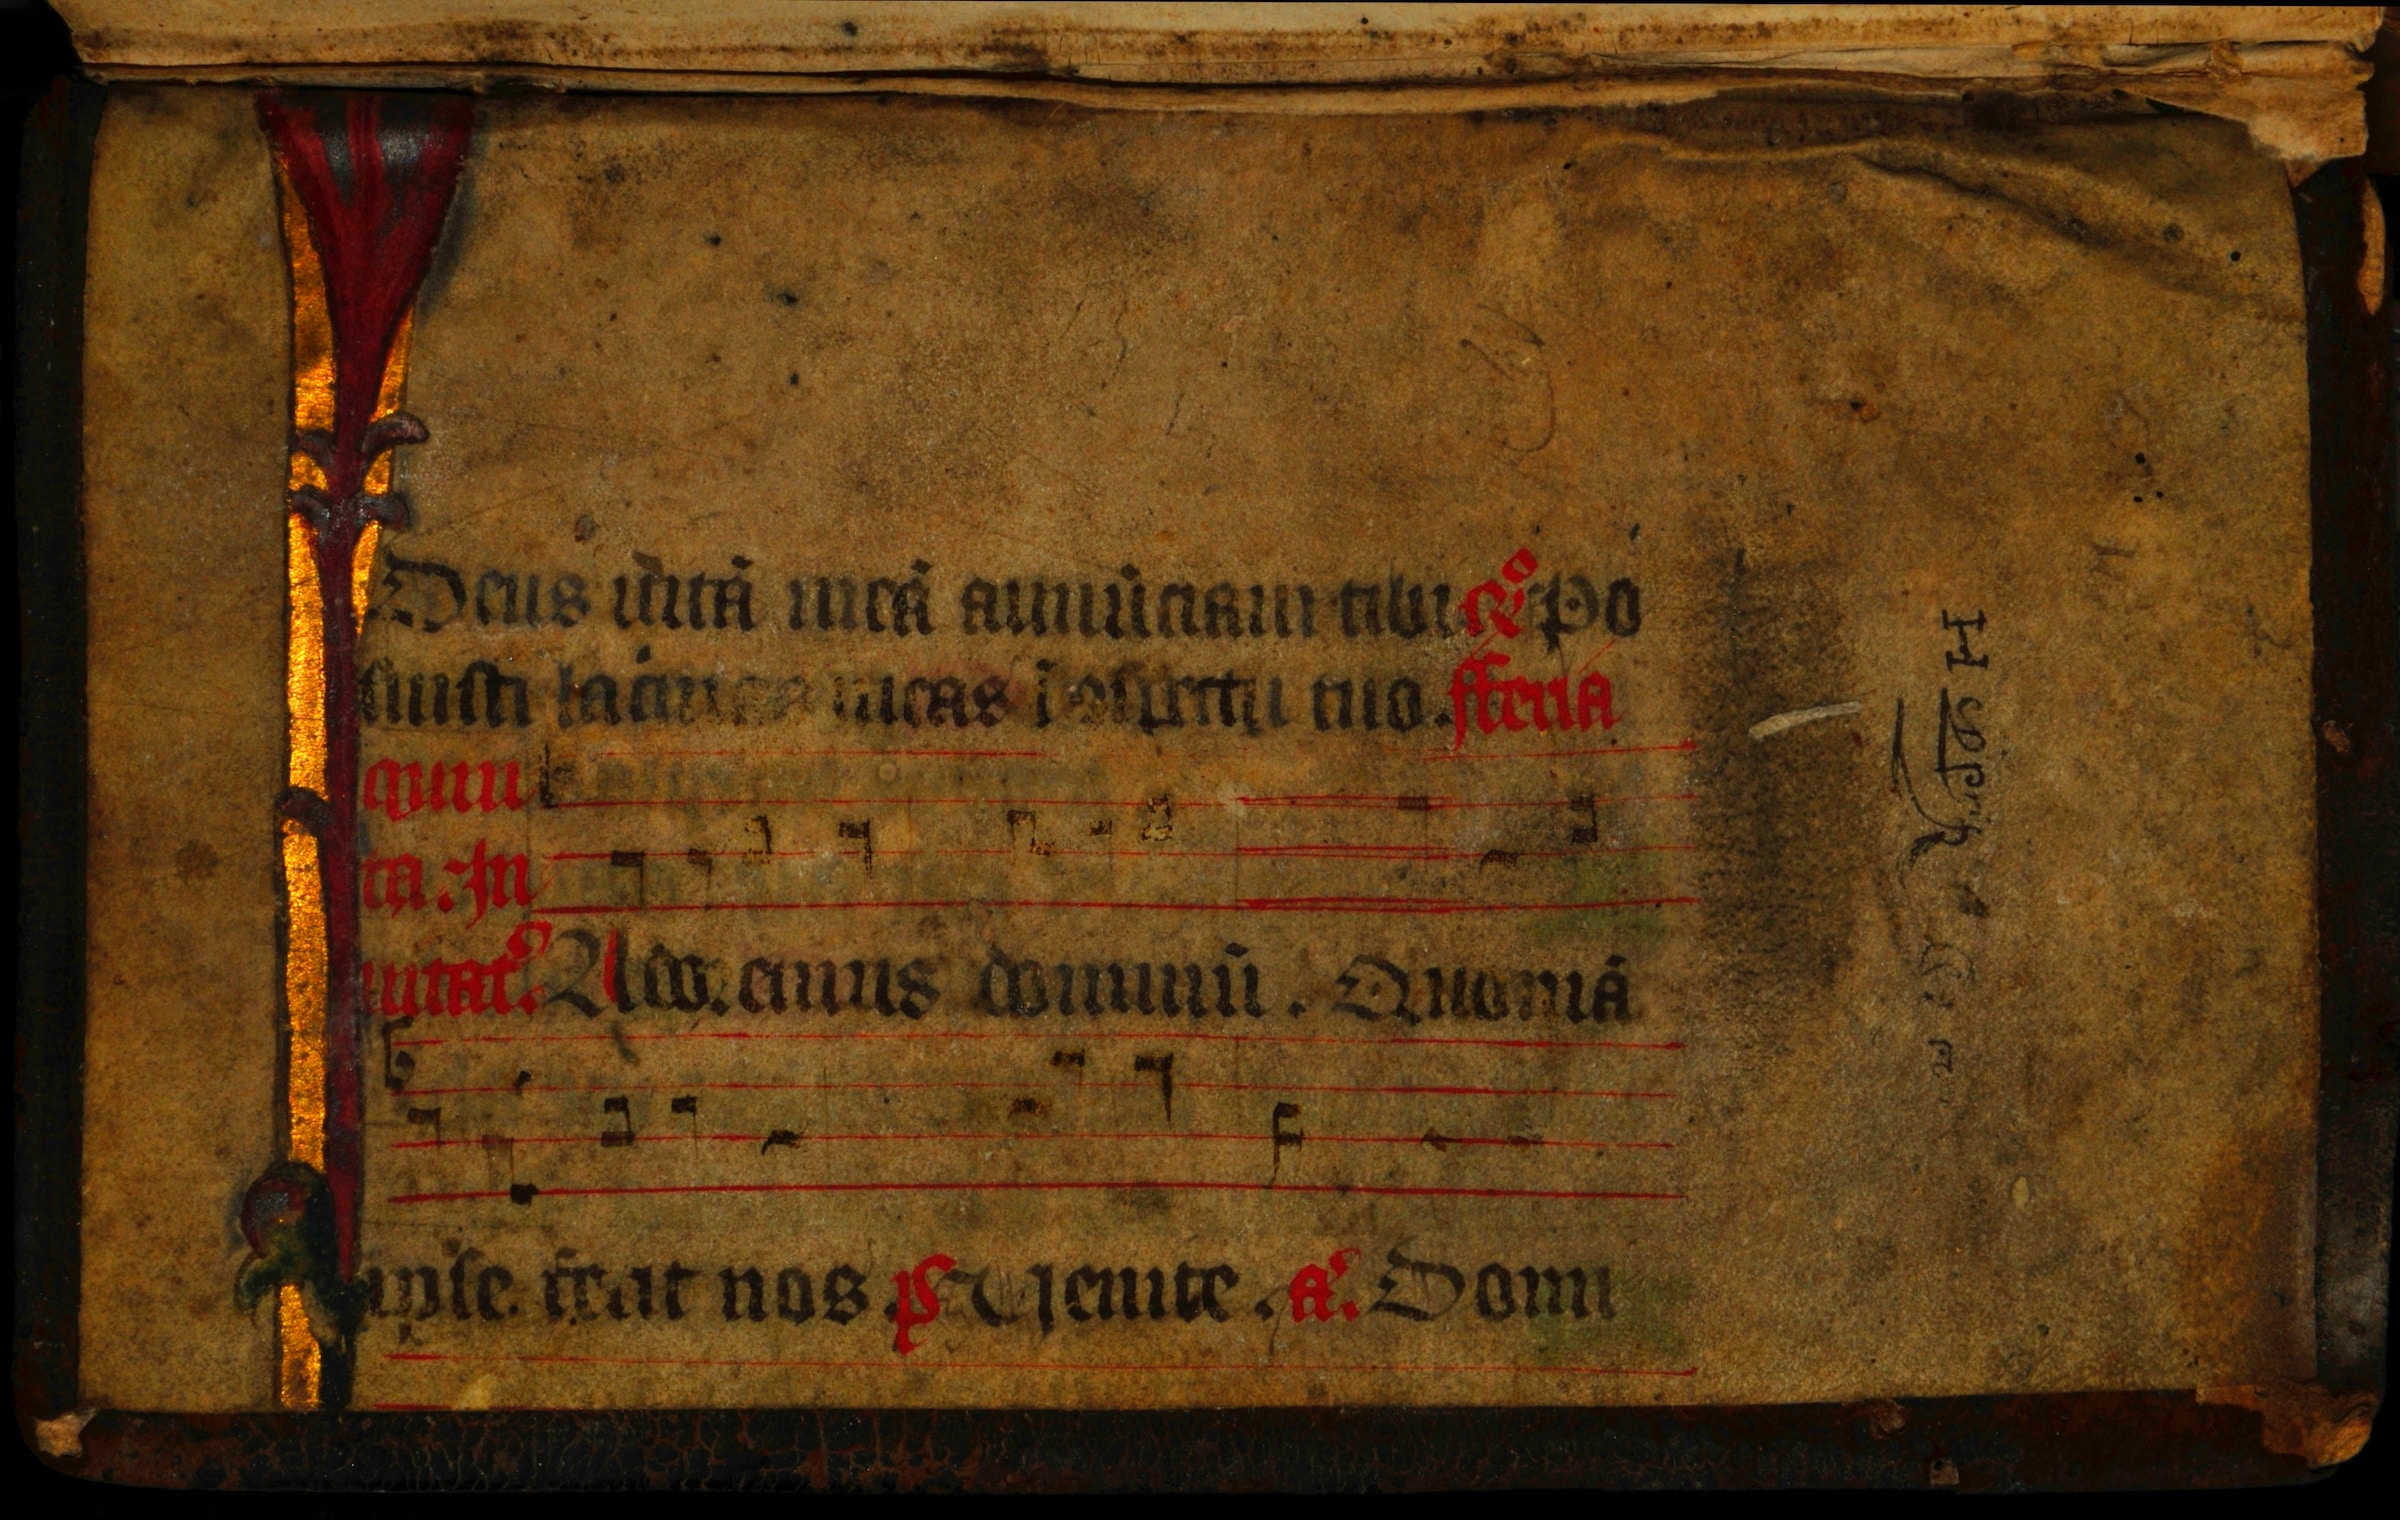 Deus uitā meā annūciam tibi Rº Po
suisti lacrimas meas ī ɔspectu tuo. fferia
quin
ta. In
uitat᷒. Ado. emus dominū. Quoniā
ipse fecit nos. ps Uenite. a᷒. Domi